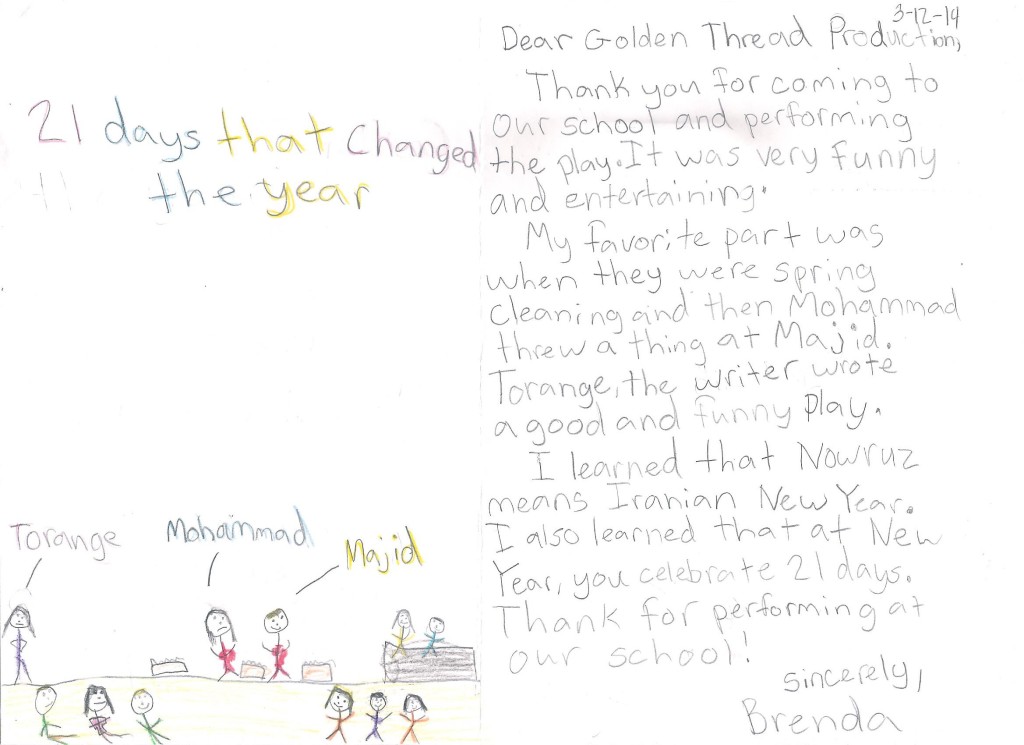 21 days that changed
the year
Torange
Mohammad
Majid
3-12-14
Dear Golden Thread Production,
Thank you for coming to
our school and performing
the play. It was very funny
and entertaining.
My favorite part was
when they were spring
cleaning and then Mohammad
threw a thing at Majid.
Torange, the writer wrote
a good and funny play.
I learned that Nowruz
means Iranian New Year.
I also learned that at New
Year, you celebrate 21 days.
Thank for performing at
our school!
sincerely,
Brenda